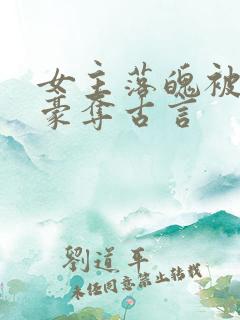 女主落魄被
豪夺古言
劉道平
未经同意禁止转载